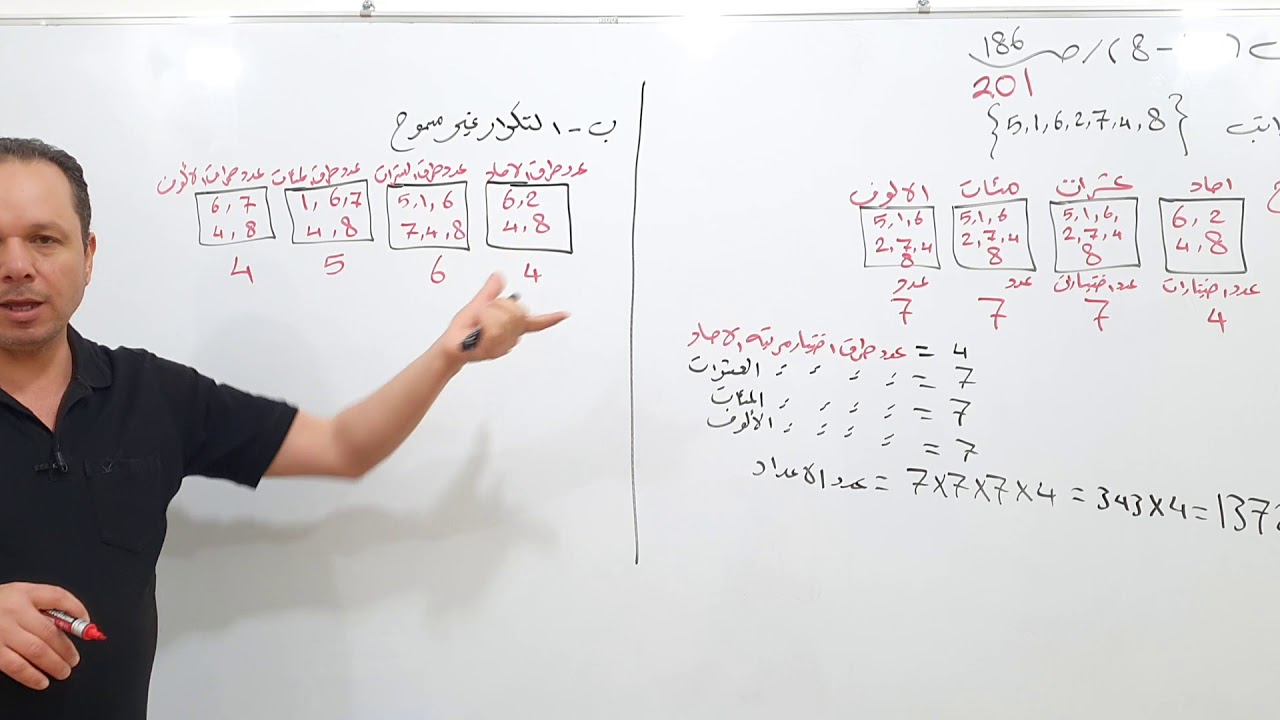 8 - ) / ص 186
201
{5, 1, 6, 2, 7, 4, 8}
احاد عشرات مئات الالوف
6, 2 5, 1, 6, 5, 1, 6 5, 1, 6
4, 8 2, 7, 4 2, 7, 4 2, 7, 4
8 8 8
عدد اختيارات عدد اختيارات عدد عدد
4 7 7 7
عدد طرق اختيار مرتبة الاحاد = 4
العشرات 〃 〃 〃 〃 = 7
المئات 〃 〃 〃 〃 = 7
الألوف 〃 〃 〃 〃 = 7
عدد الاعداد = 7×7×7×4 = 343×4 = 1372
ب - التكرار غير مسموح
عدد طرق الاحاد عدد طرق العشرات عدد طرق المئات عدد طرق الألوف
6, 2 5, 1, 6 1, 6, 7 6, 7
4, 8 7, 4, 8 4, 8 4, 8
4 6 5 4